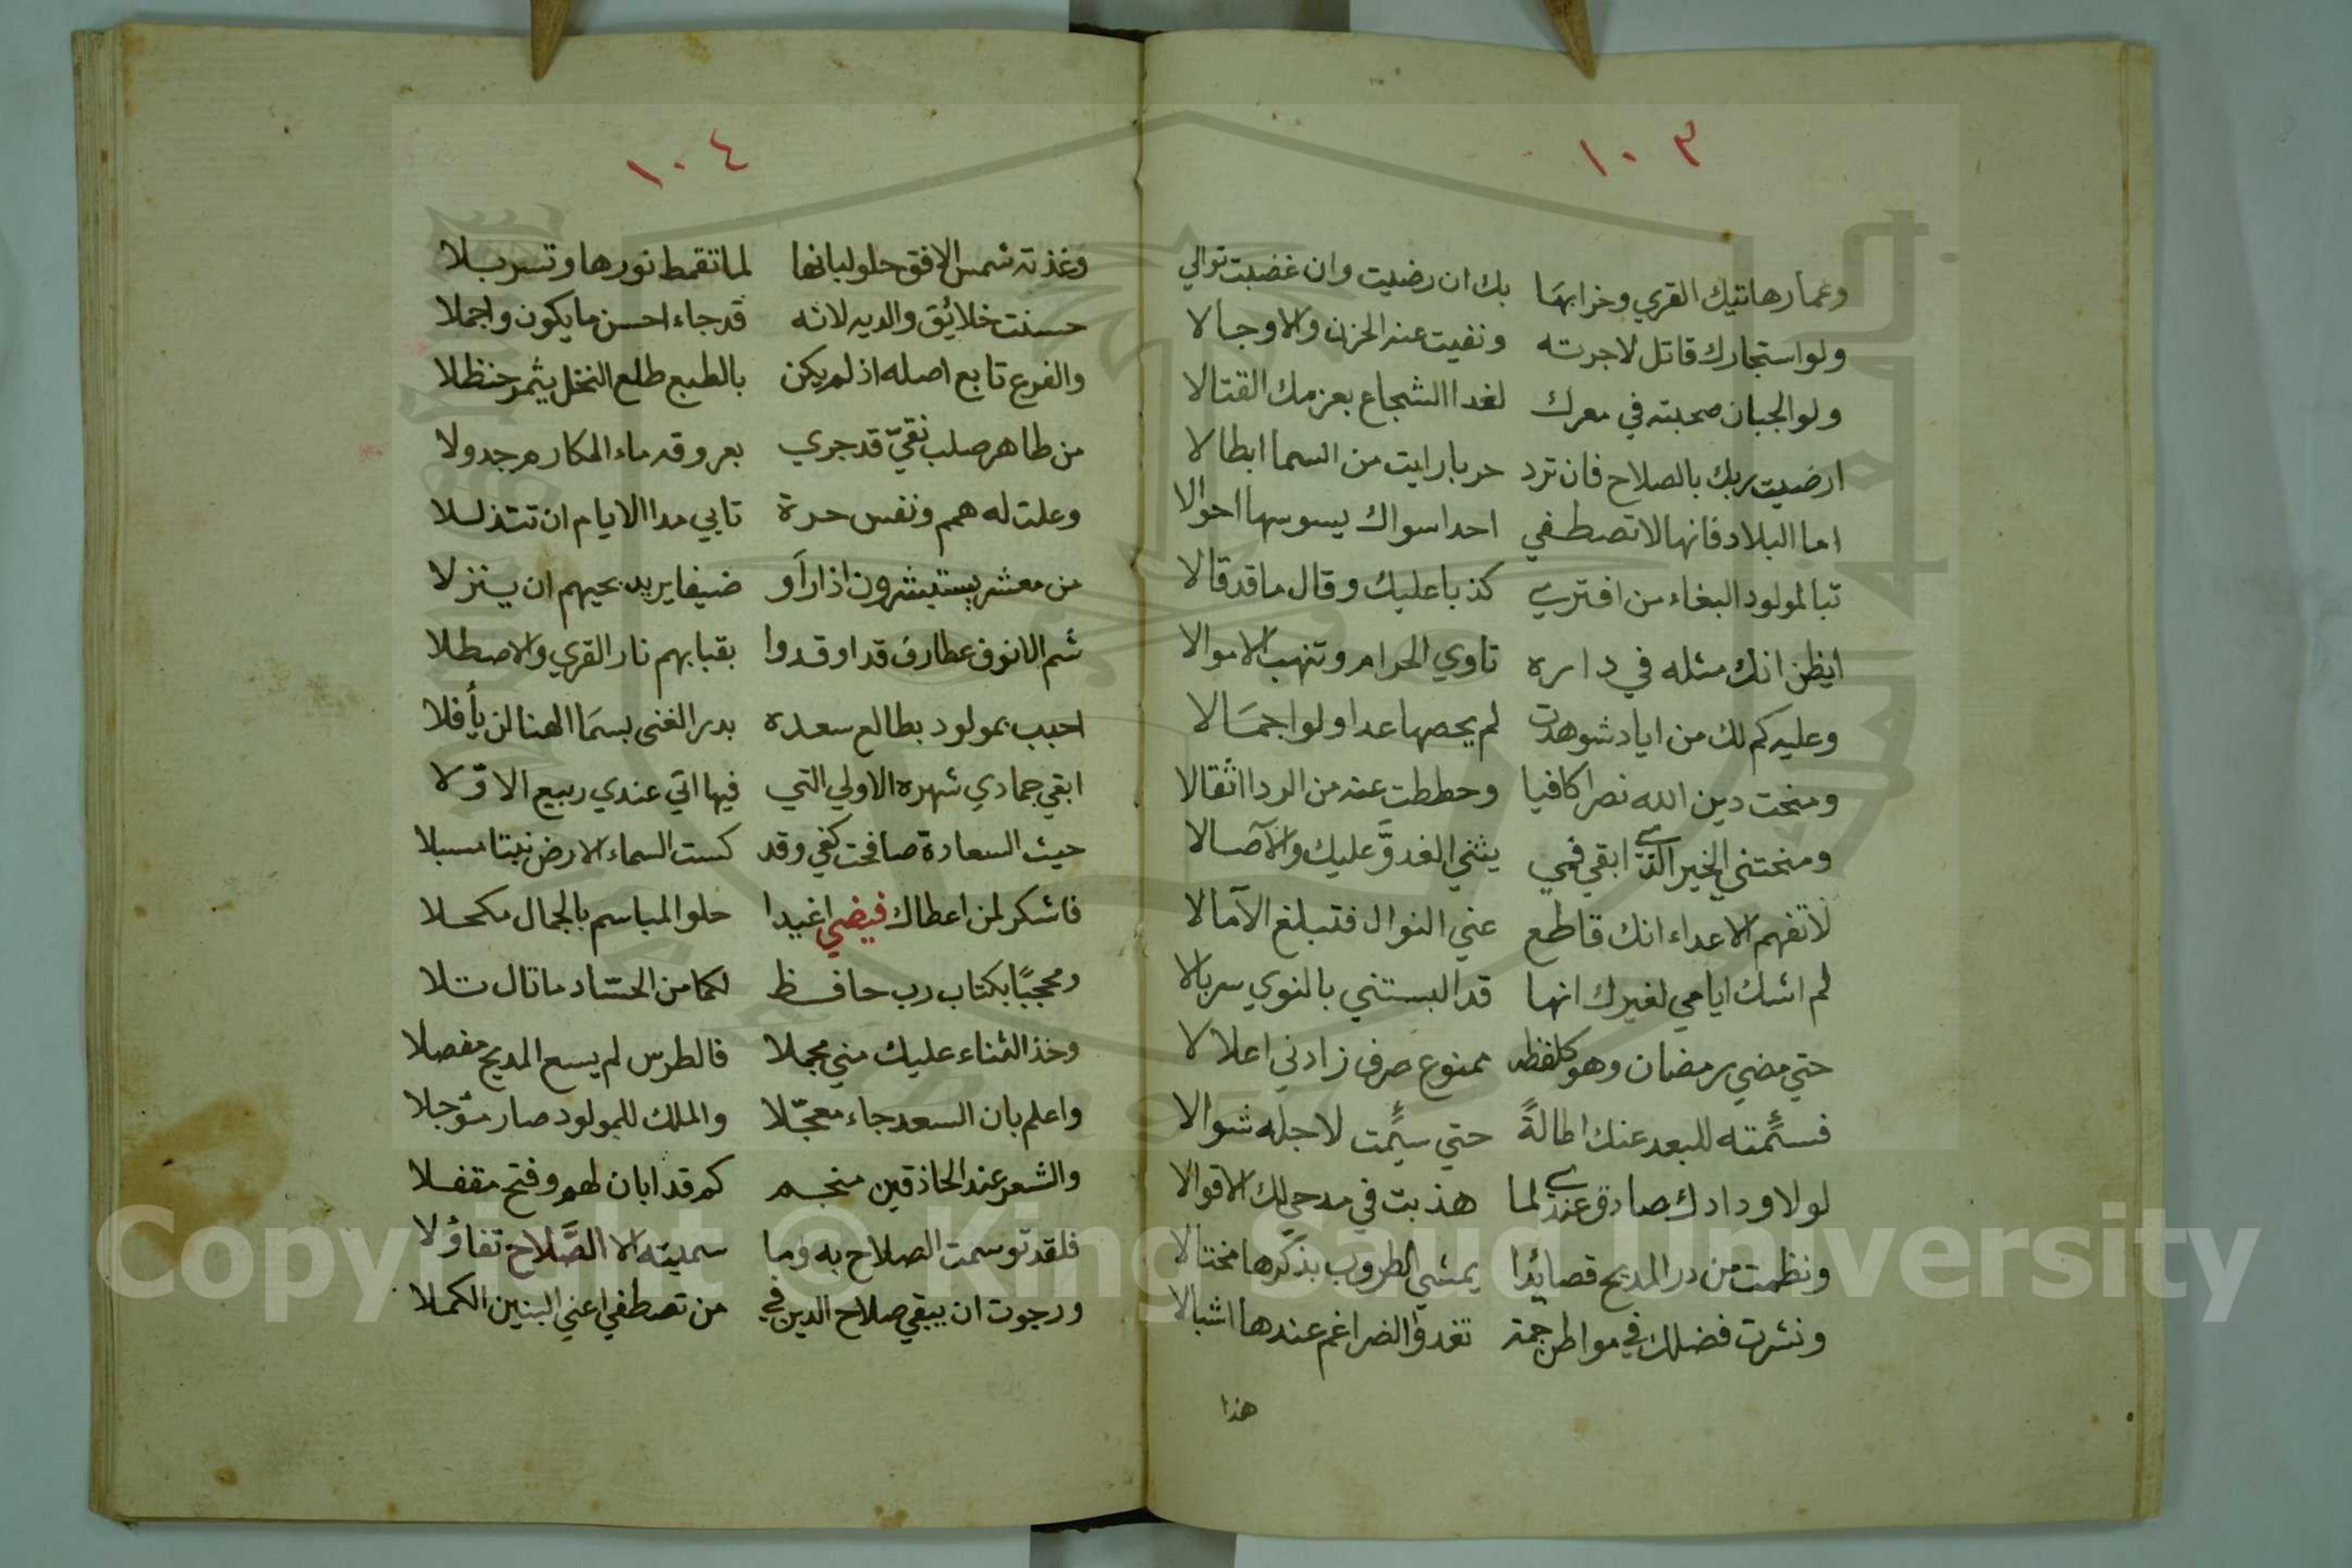 ١٠٣
وعمارهاتيك القري وخرابها بك ان رضيت وان غضبت توالي
ولو استجارك قاتل لاجرته ونفيت عنه الحزن والاوجالا
ولو الجبان صحبته في معرك لغدا الشجاع بعزمك القتالا
ارضيت ربك بالصلاح فان ترد حربا رايت من السما ابطالا
اما البلاد فانها لا تصطفي احدا سواك يسوسها احوالا
تبا لمولود البغاء من افتري كذبا عليك وقال ما قد قالا
ايظن انك مثله في داره تاوي الحرام وتنهب الاموالا
وعليه كم لك من اياد شوهدت لم يحصها عدا ولو اجمالا
ومنحت دين الله نصرا كافيا وحططت عنه من الردا اثقالا
ومنحتني الخير الذي ابقي فمي يثني الغدوَّ عليك والآصالا
لا تفهم الاعداء انك قاطع عني النوال فتبلغ الآمالا
لم اشك ايامي لغيرك انها قد البستني بالنوي سربالا
حتي مضي رمضان وهو كلفظه ممنوع صرف زادني اعلالا
فسئمته للبعد عنك اطالةً حتي سئمت لاجله شوالا
لولا ودادك صادق عندي لما هذبت في مدحي لك الاقوالا
ونظمت من در المديح قصائدا يمشي الطروب بذكرها مختالا
ونشرت فضلك في مواطن جمة تغدوا الضراغم عندها اشبالا
هذا
١٠٤
وغذته شمس الافق حلو لبانها لما تقمط نورها وتسربلا
حسنت خلائق والديه لانه قد جاء احسن ما يكون واجملا
والفرع تابع اصله اذ لم يكن بالطبع طلع النخل يثمر حنظلا
من طاهر صلب نقيّ قد جري بعروقه ماء المكارم جدولا
وعلت له همم ونفس حرة تابي مدا الايام ان تتذللا
من معشر يستبشرون اذا رآو ضيفا يريد بحيهم ان ينزلا
شم الانوف عطارف قد اوقدوا بقبابهم نار القري والاصطلا
احبب بمولود بطالع سعده بدر الغنى بسما الهنا لن يأفلا
ابقي جمادي شهره الاولي التي فيها اتي عندي ربيع الاوّلا
حيث السعادة صافحت كفي وقد كست السماء الارض نبتا مسبلا
فاشكر لمن اعطاك فيضي اغيدا حلو المباسم بالجمال مكحلا
ومحجبًا بكتاب رب حافظ لكما من الحسّاد ما تال تلا
وخذ الثناء عليك مني مجملا فالطرس لم يسع المديح مفصلا
واعلم بان السعد جاء معجّلا والملك للمولود صار مؤجلا
والشعر عند الحاذقين منجم كم قد ابان لهم وفتح مقفلا
فلقد توسمت الصلاح به وما سميته الا الصَّلاح تفاؤلا
ورجوت ان يبقي صلاح الدين في من تصطفي اعني البنين الكملا
Copyright © King Saud University